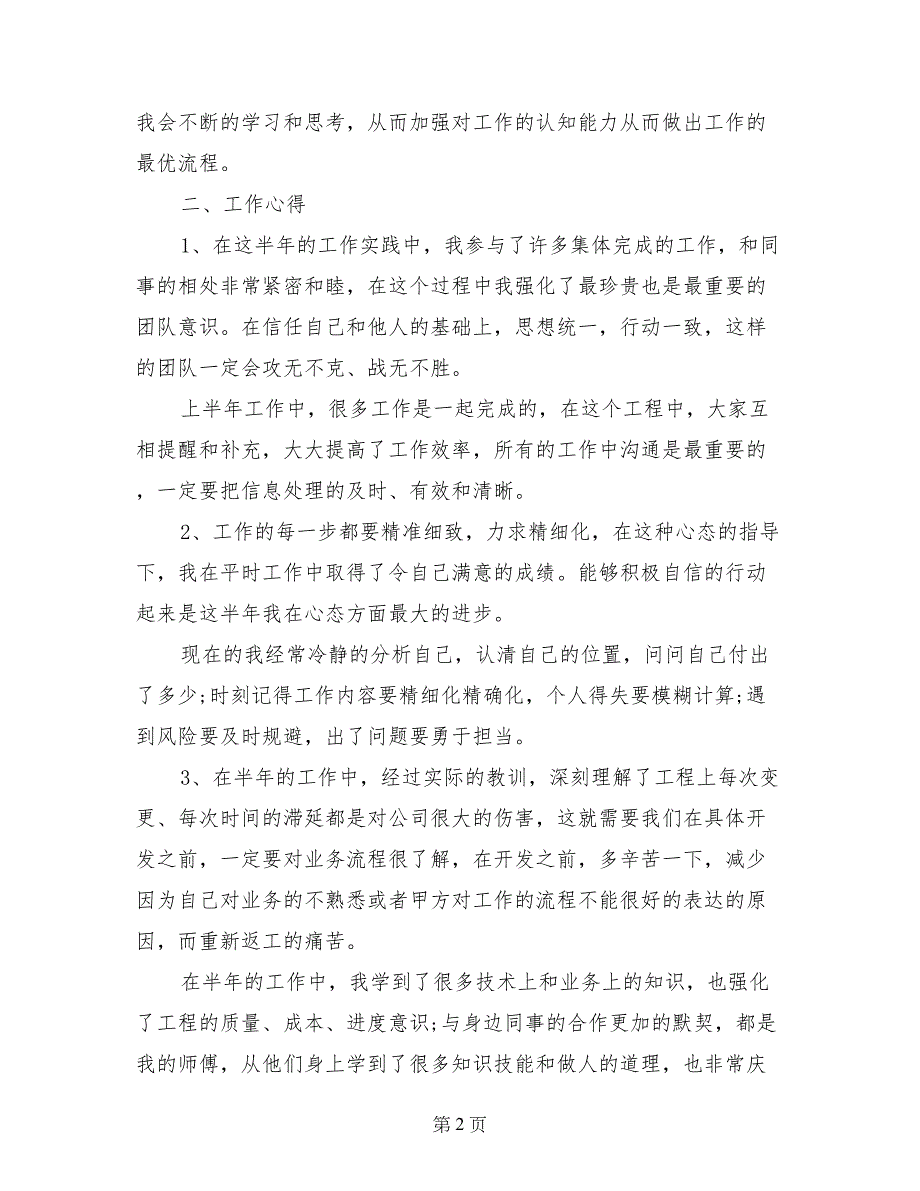 我会不断的学习和思考，从而加强对工作的认知能力从而做出工作的
最优流程。
二、工作心得
1、在这半年的工作实践中，我参与了许多集体完成的工作，和同
事的相处非常紧密和睦，在这个过程中我强化了最珍贵也是最重要的
团队意识。在信任自己和他人的基础上，思想统一，行动一致，这样
的团队一定会攻无不克、战无不胜。
上半年工作中，很多工作是一起完成的，在这个工程中，大家互
相提醒和补充，大大提高了工作效率，所有的工作中沟通是最重要的
，一定要把信息处理的及时、有效和清晰。
2、工作的每一步都要精准细致，力求精细化，在这种心态的指导
下，我在平时工作中取得了令自己满意的成绩。能够积极自信的行动
起来是这半年我在心态方面最大的进步。
现在的我经常冷静的分析自己，认清自己的位置，问问自己付出
了多少;时刻记得工作内容要精细化精确化，个人得失要模糊计算;遇
到风险要及时规避，出了问题要勇于担当。
3、在半年的工作中，经过实际的教训，深刻理解了工程上每次变
更、每次时间的滞延都是对公司很大的伤害，这就需要我们在具体开
发之前，一定要对业务流程很了解，在开发之前，多辛苦一下，减少
因为自己对业务的不熟悉或者甲方对工作的流程不能很好的表达的原
因，而重新返工的痛苦。
在半年的工作中，我学到了很多技术上和业务上的知识，也强化
了工程的质量、成本、进度意识;与身边同事的合作更加的默契，都是
我的师傅，从他们身上学到了很多知识技能和做人的道理，也非常庆
第 2 页